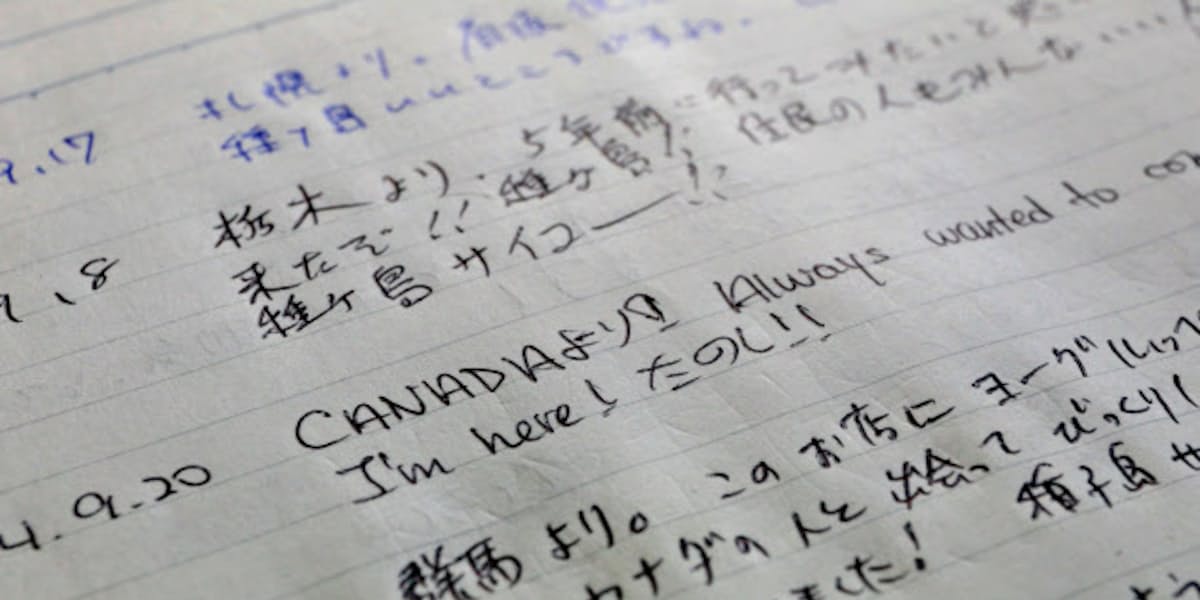 9.17 札幌より。
種ヶ島いいところですね。
9.18 栃木より。5年前に行ってみたいと
来たぞ!! 種ヶ島!! 住民の人もみんないい
種ヶ島サイコー!!
CANADAより Always wanted to
I'm here! たのし!!
4.9.20
群馬より。このお店にヨーグ
カナダの人と出会ってびっくりし
ました! 種子島サ